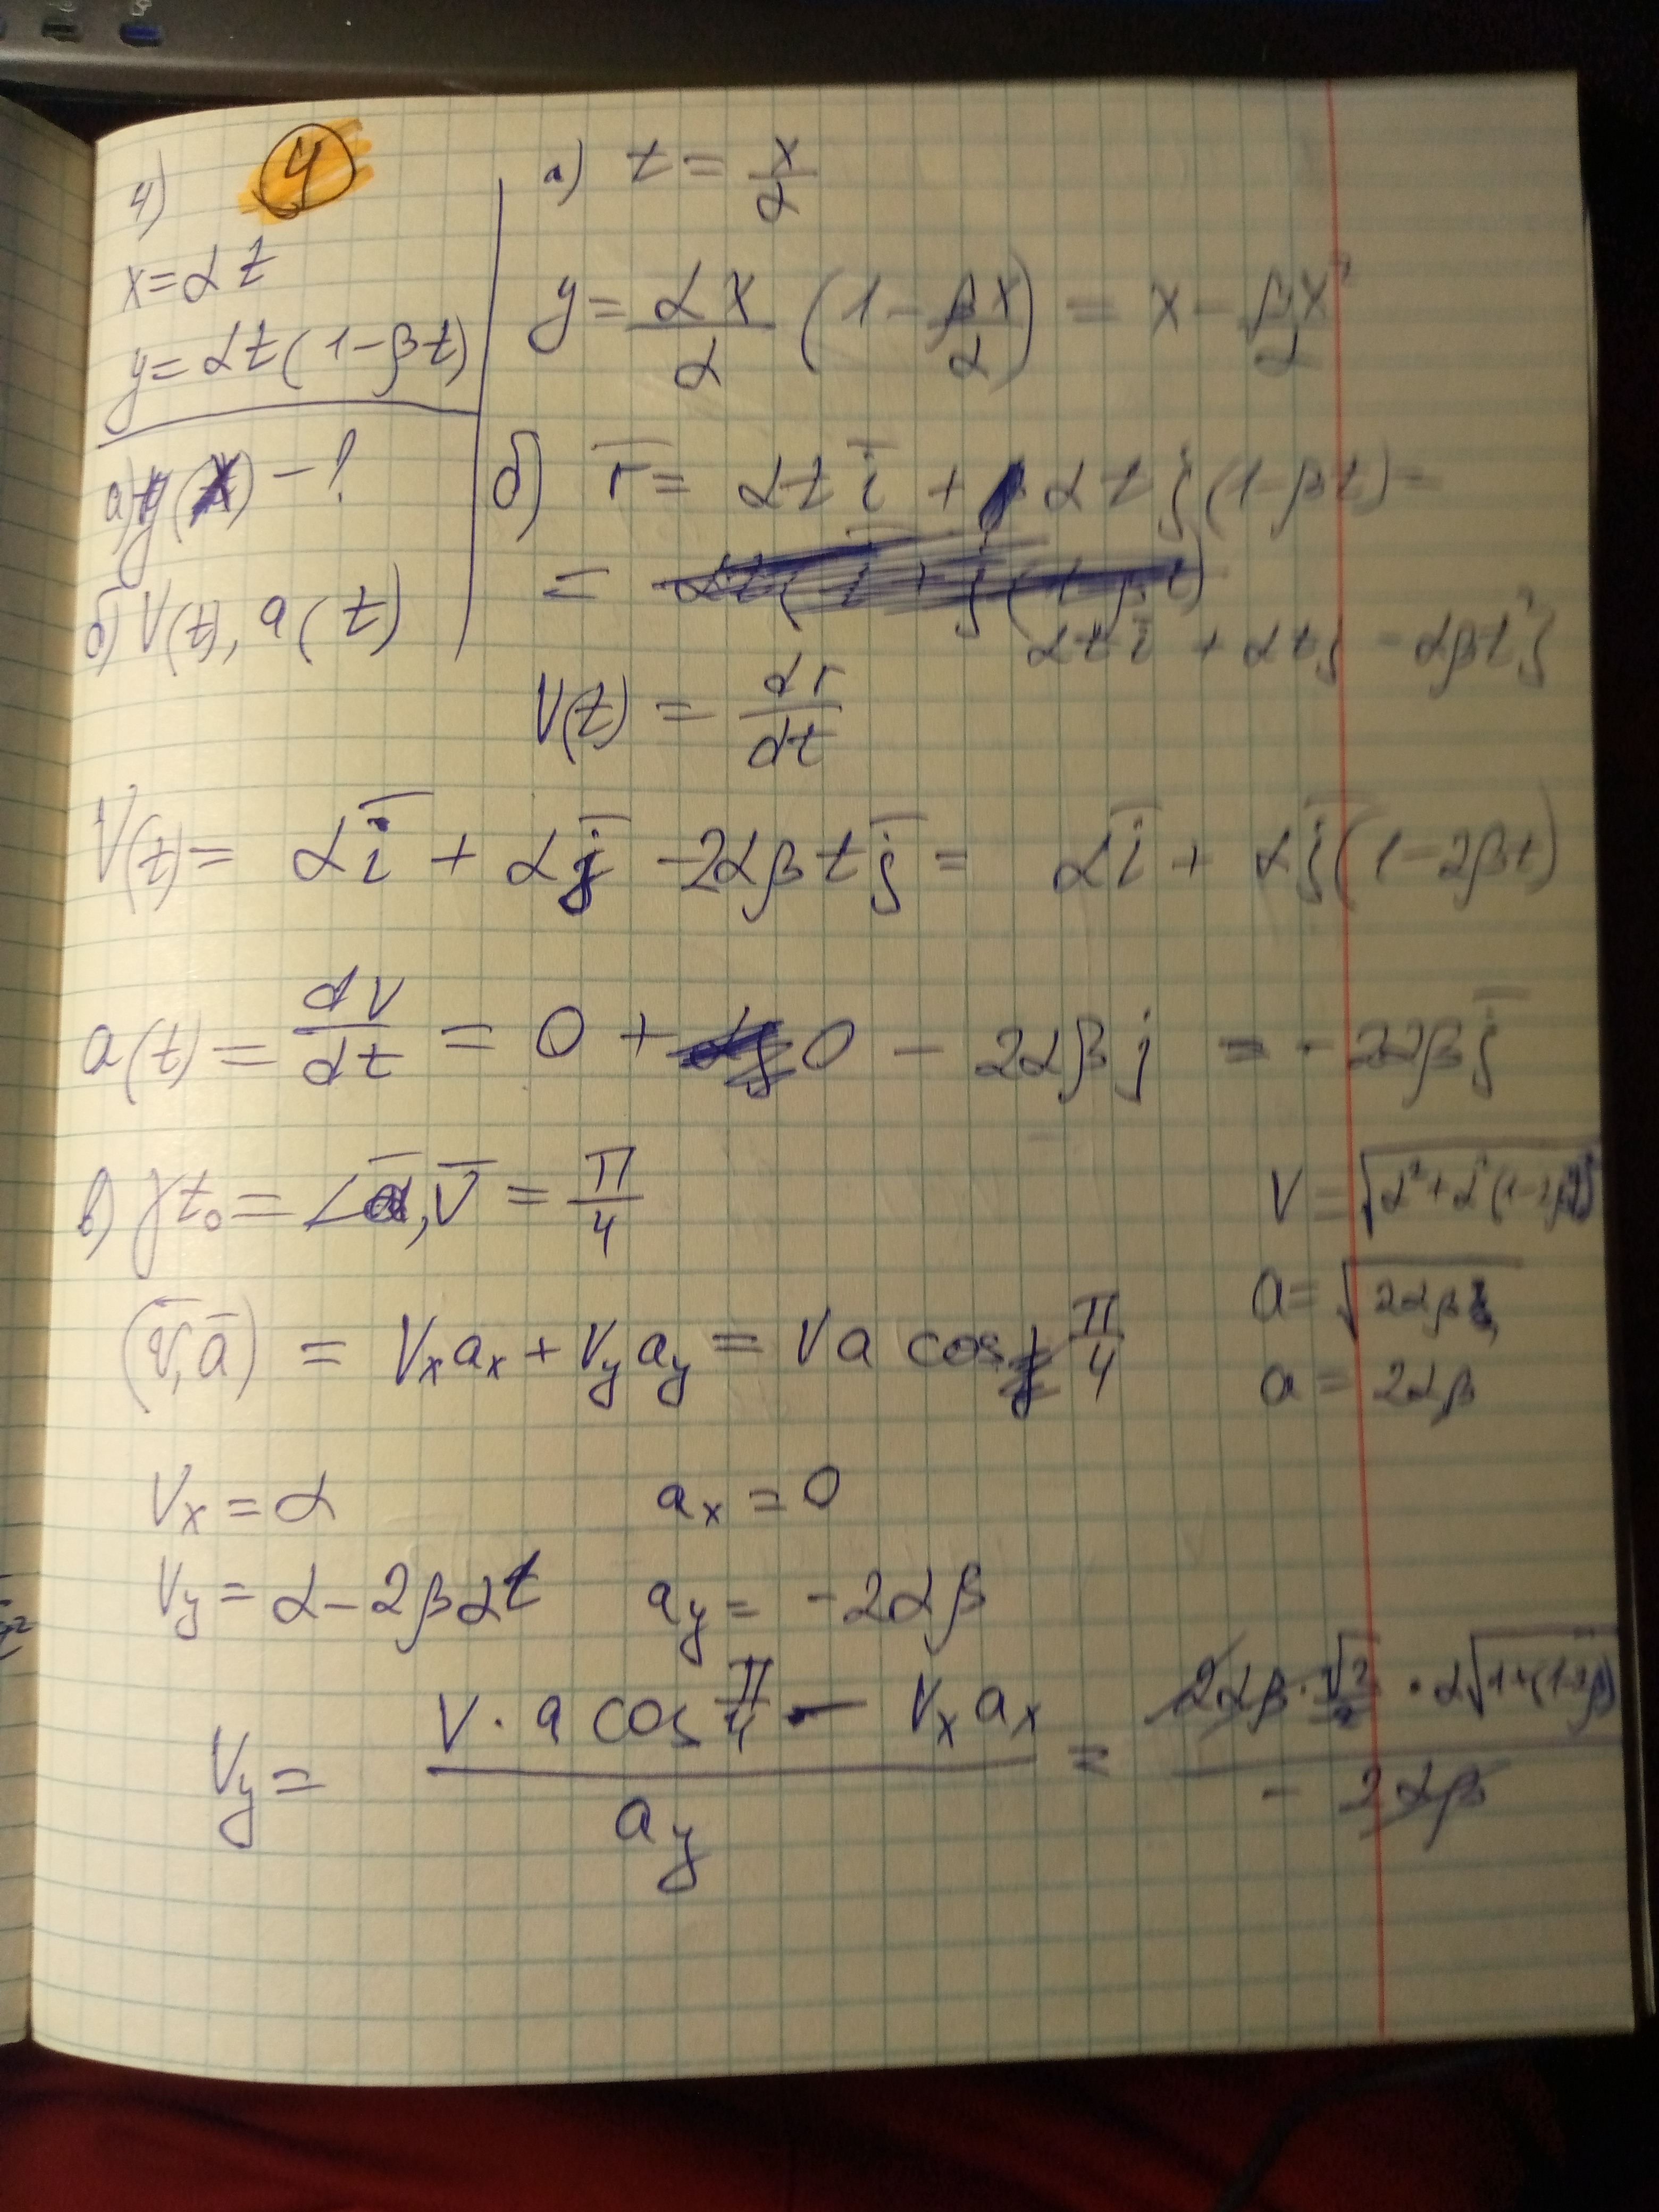 4) 4
x = αt
y = αt(1-βt)
а) y(x) - ?
б) V(t), a(t)
а) t = x/α
y = αx/α (1 - βx/α) = x - βx²/α
б) r̅ = αt i̅ + αt j(1-βt) =
=
αt i̅ + αt j - αβt² j
V(t) = dr/dt
V(t) = α i̅ + α j̅ - 2αβt j̅ = α i̅ + α j̅(1-2βt)
a(t) = dV/dt = 0 + 0 - 2αβ j = -2αβ j̅
в) γt₀ = ∠a̅, v̅ = π/4
V = √(α² + α²(1-2βt)²)
(v̅, a̅) = Vₓaₓ + V_y a_y = Va cos π/4
a = √2αβ
a = 2αβ
Vₓ = α aₓ = 0
V_y = α - 2βαt a_y = -2αβ
V_y = (V · a cos π/4 - Vₓaₓ)/a_y = (2αβ · √2/2 · α√(1+(1-2β)))/(-2αβ)